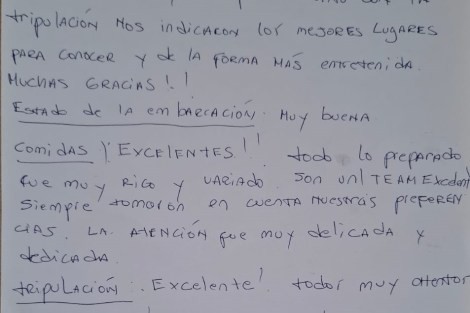 tripulación nos indicaron los mejores lugares
para conocer y de la forma más entretenida.
Muchas gracias!!
Estado de la embarcación. Muy buena
Comidas ¡Excelentes!! todo lo preparado
fue muy rico y variado. Son un TEAM Excelent
Siempre tomaron en cuenta nuestras preferen
cias. La atención fue muy delicada y
dedicada.
tripulación. Excelente! todos muy atentos